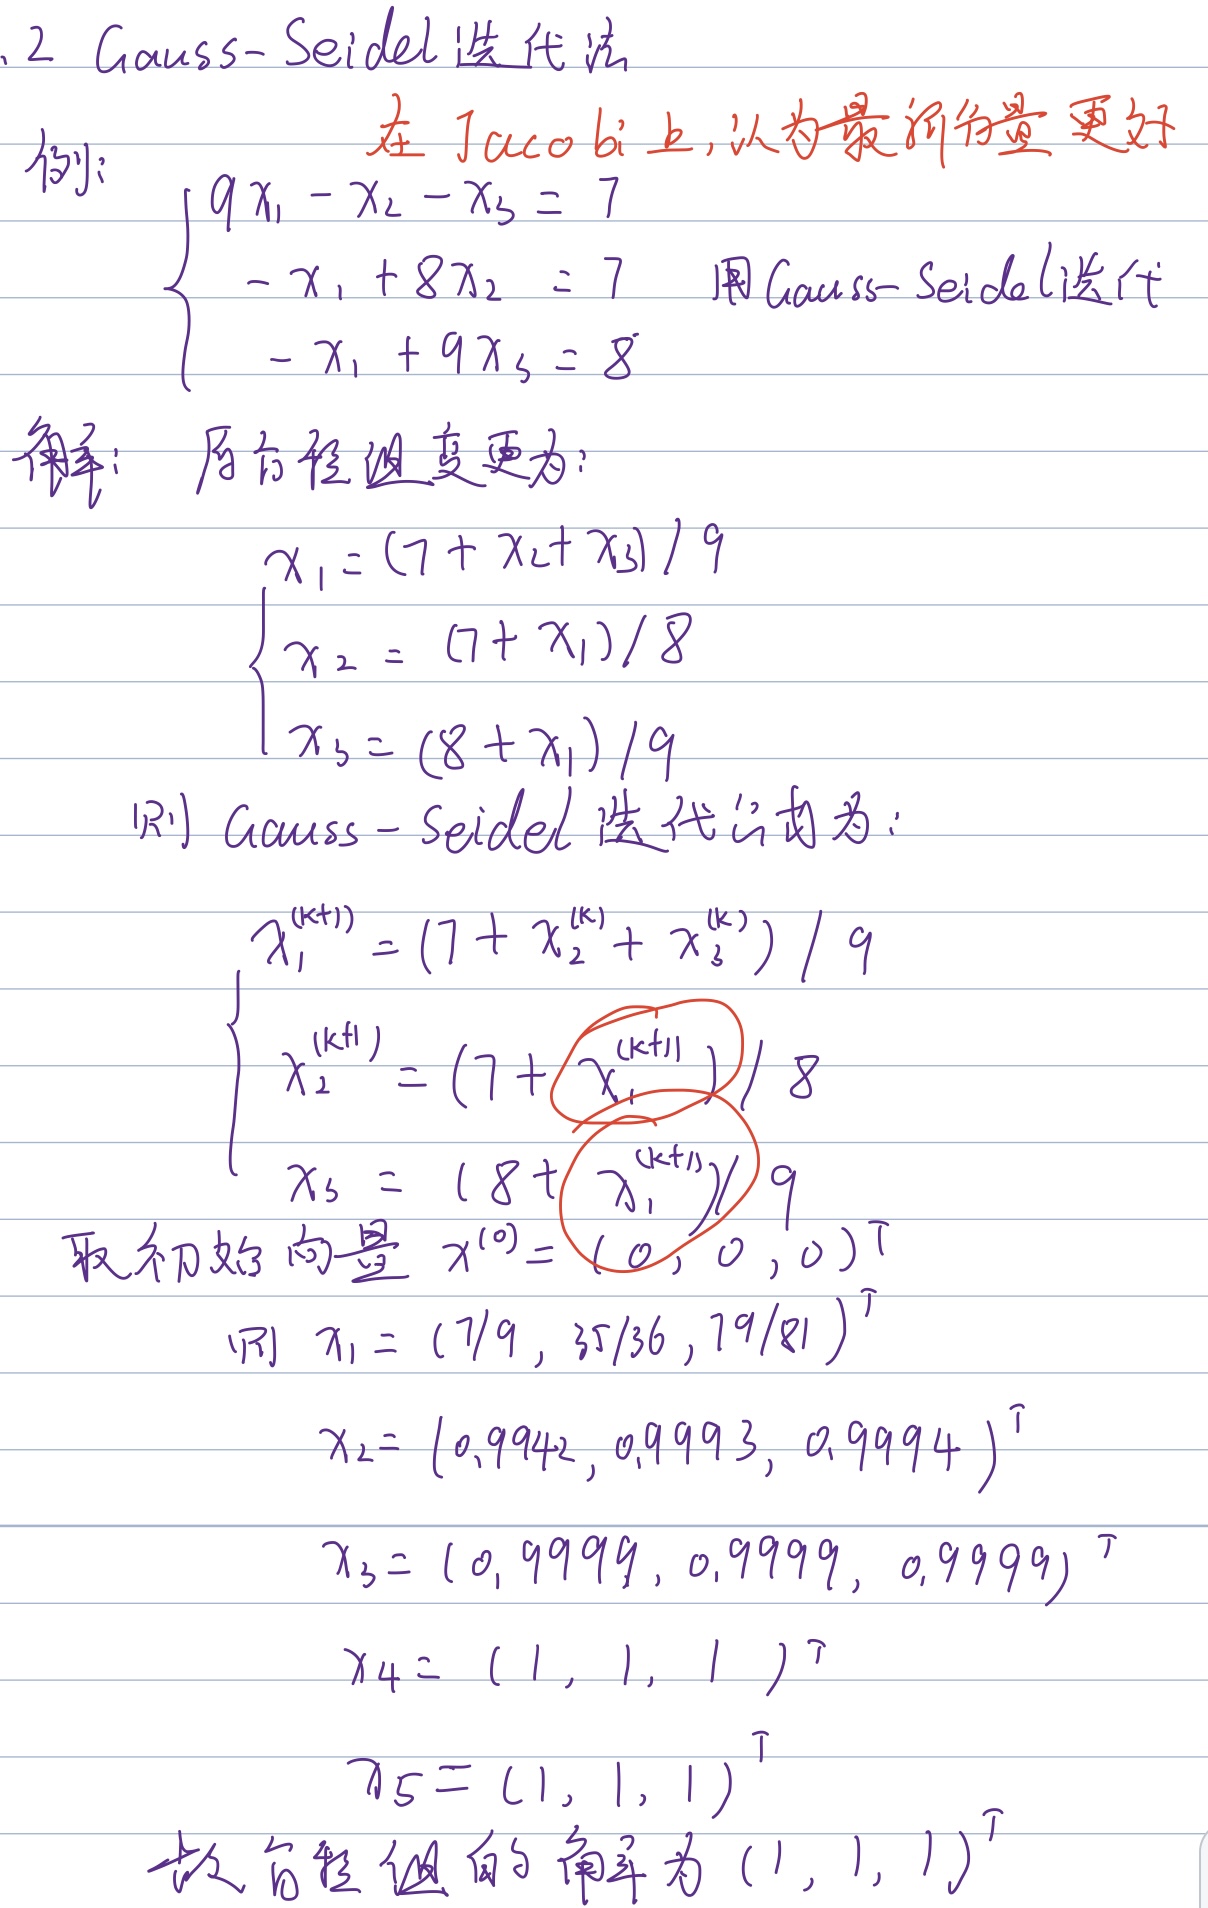 .2 Gauss-Seidel 迭代法
在Jacobi上,认为最新分量更好
例:
9x₁ - x₂ - x₃ = 7
- x₁ + 8x₂ = 7 用Gauss-Seidel迭代
- x₁ + 9x₃ = 8
解: 原方程组变更为:
x₁ = (7 + x₂ + x₃) / 9
x₂ = (7 + x₁) / 8
x₃ = (8 + x₁) / 9
则 Gauss-Seidel 迭代公式为:
x₁^(k+1) = (7 + x₂^(k) + x₃^(k)) / 9
x₂^(k+1) = (7 + x₁^(k+1)) / 8
x₃ = (8 + x₁^(k+1)) / 9
取初始向量 x^(0) = (0, 0, 0)^T
则 x₁ = (7/9, 35/36, 79/81)^T
x₂ = (0.9942, 0.9993, 0.9994)^T
x₃ = (0.9999, 0.9999, 0.9999)^T
x₄ = (1, 1, 1)^T
x₅ = (1, 1, 1)^T
故方程组的解为 (1, 1, 1)^T